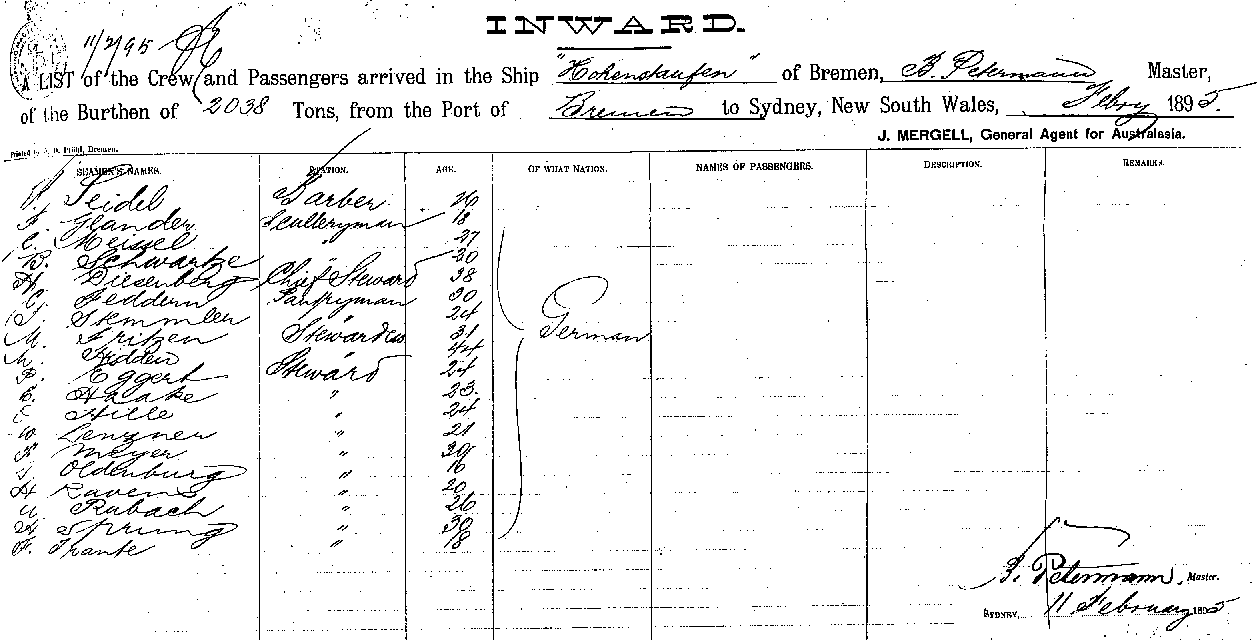 INWARD.
11/2/95
A LIST of the Crew and Passengers arrived in the Ship "Hohenstaufen" of Bremen, B. Petermann Master,
of the Burthen of 2038 Tons, from the Port of Bremen to Sydney, New South Wales, Febry 1895.
J. MERGELL, General Agent for Australasia.
SEAMEN'S NAMES. STATION. AGE. OF WHAT NATION. NAMES OF PASSENGERS. DESCRIPTION. REMARKS.
Seidel Barber 26
F. Glander Sculleryman 18
C. Meissel " 27
B. Schwartze 30
H. Diesenberg Chief Steward 38
C. Feddern Pantryman 30
Stemmler 24
M. Fritzen Stewardess 31 German
M. Fedden " 44
Eggert Steward 24
Haake " 23
Hille " 24
W. Lenzner " 21
Meyer " 39
Oldenburg " 16
H. Ravens " 20
Rabach " 26
H. Sprung " 30
F. Franke " 18
B. Petermann, Master.
SYDNEY, 11 February 1895